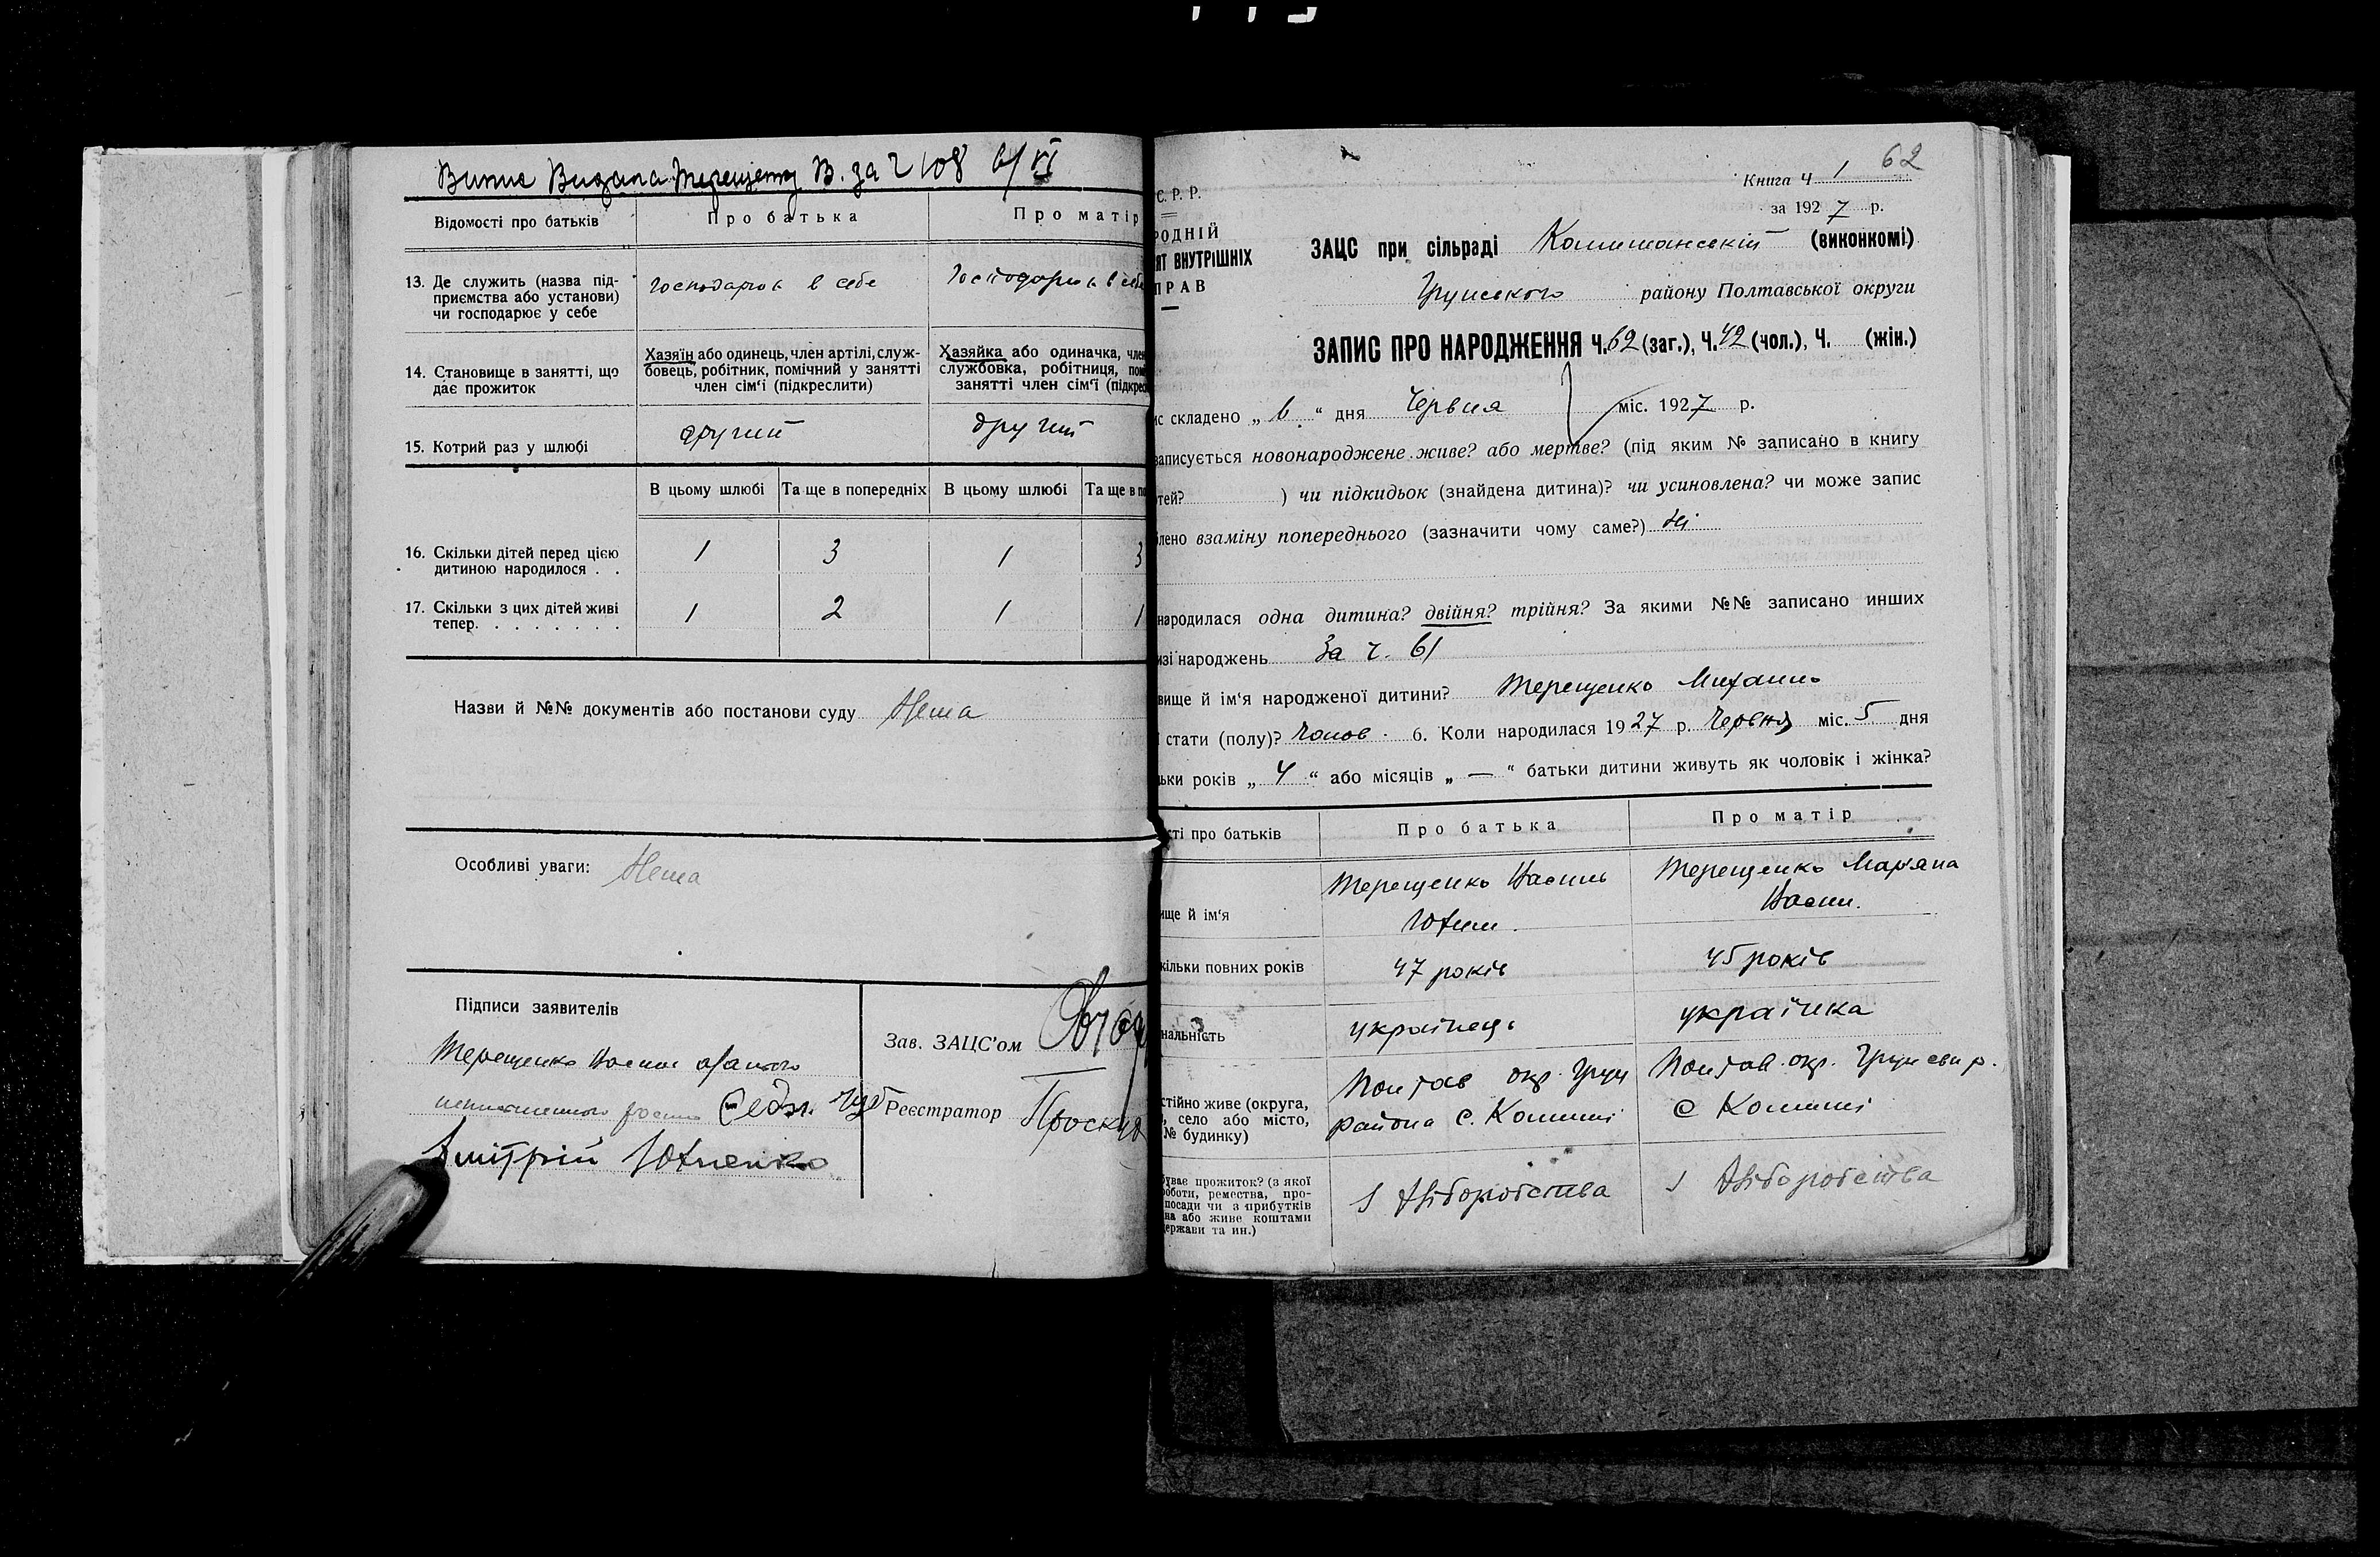 Випис Видана Терещенку В. за Ч 108 6/VI
Відомості про батьків
Про батька
Про матір
13. Де служить (назва під-
приємства або установи)
чи господарює у себе
господарює в себе
Господарює в себе
14. Становище в занятті, що
дає прожиток
Хазяїн або одинець, член артілі, служ-
бовець, робітник, помічний у занятті
член сім‘ї (підкреслити)
Хазяйка або одиначка, член
службовка, робітниця, пом
занятті член сім‘ї (підкрес
15. Котрий раз у шлюбі
другий
другий
В цьому шлюбі
Та ще в попередніх
В цьому шлюбі
Та ще в по
16. Скільки дітей перед цією
дитиною народилося . .
1 3 1 3
17. Скільки з цих дітей живі
тепер. . . . . . . .
1 2 1 1
Назви й №№ документів або постанови суду Нема
Особливі уваги: Нема
Підписи заявителів
Терещенко Василь
Дмітрій Юхненко
Зав. ЗАЦС’ом
Реєстратор Проскур
62
Книга Ч 1
за 1927 р.
С. Р. Р.
РОДНІЙ
ЯТ ВНУТРІШНІХ
ПРАВ
ЗАЦС при сільраді Комишанській (виконкомі)
Грунського району Полтавської округи
ЗАПИС ПРО НАРОДЖЕННЯ Ч. 62 (заг.), Ч. 42 (чол.), Ч. (жін.)
ис складено „ 6 “ дня Червня міс. 1927 р.
записується новонароджене живе? або мертве? (під яким № записано в книгу
тей? ) чи підкидьок (знайдена дитина)? чи усиновлена? чи може запис
блено взаміну попереднього (зазначити чому саме?) Ні
народилася одна дитина? двійня? трійня? За якими №№ записано инших
изі народжень За ч. 61
вище й ім‘я народженої дитини? Терещенко Михайло
ї стати (полу)? Чолов. 6. Коли народилася 1927 р. Червня міс. 5 дня
льки років „ 4 “ або місяців „ — “ батьки дитини живуть як чоловік і жінка?
сті про батьків
Про батька
Про матір
ище й ім‘я
Терещенко Василь
Юхим.
Терещенко Мар'яна
Васил.
кільки повних років
47 років
45 років
нальність
українець
українка
стійно живе (округа,
, село або місто,
№ будинку)
Полтав окр. Грун
района с. Комиші
Полтав. окр. Грунський р.
с Комиші
буває прожиток? (з якої
оботи, ремества, про-
посади чи з прибутків
на або живе коштами
держави та ин.)
з Хліборобства
з Хліборобства